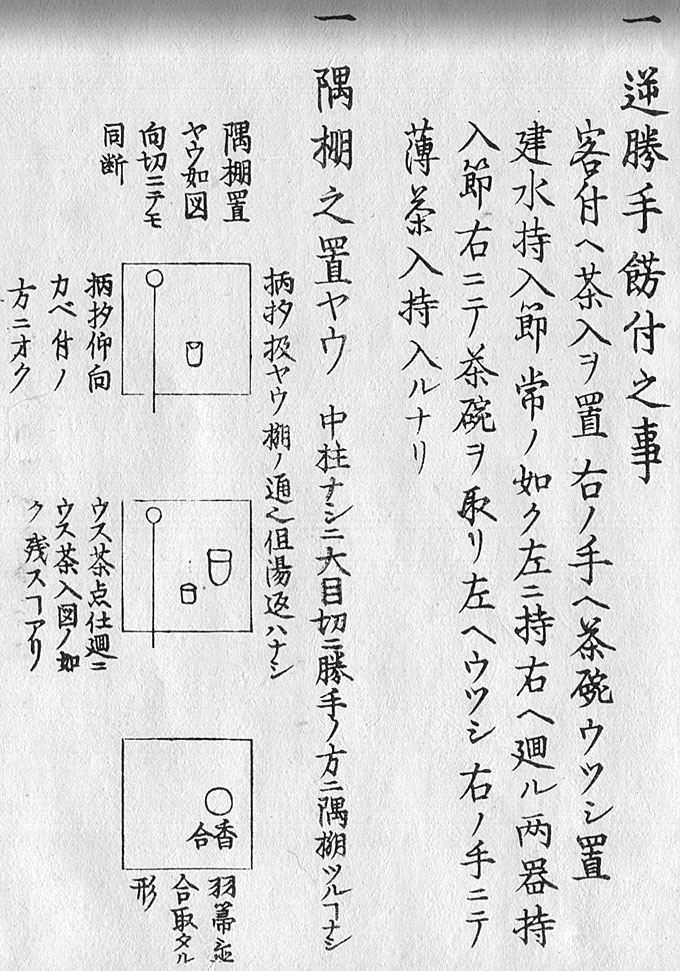 一 逆勝手餝付之事
客付ヘ茶入ヲ置右ノ手ヘ茶碗ウツシ置
建水持入節常ノ如ク左ニ持右ヘ廻ル両器持
入節右ニテ茶碗ヲ取リ左ヘウツシ右ノ手ニテ
薄茶入持入ルナリ
一 隅棚之置ヤウ 中柱ナシニ大目切ニ勝手ノ方ニ隅棚ツルヿナシ
柄杓扱ヤウ棚ノ通但湯返ハナシ
隅棚置
ヤウ如図
向切ニテモ
同断
柄杓仰向
カベ付ノ
方ニオク
ウス茶点仕廻ニ
ウス茶入図ノ如
ク残スヿアリ
香
合
羽箒
合取タル
形